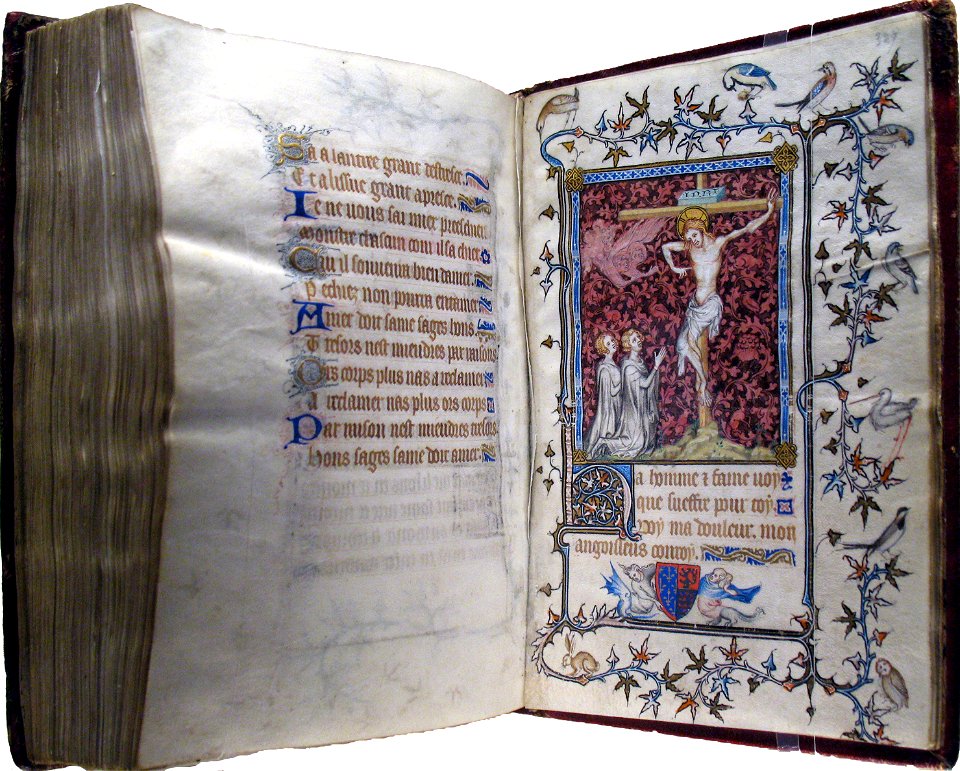 Sa a lautre grant destresce.
Et a lissue grant apresce.
Ie ne vous sai miex preeschier
Monstre chascun com il sa chier
Qu il souvenra bien damer
Pechiez non pourra entamer
Amer doit fame sages hons.
Tresors nest miendres par raisons
Ors corps plus nas a reclamer
A reclamer nas plus ors corps
Par raison nest miendres tresors
Hons sages fame doit amer.
INRI
Ha homme & fame voy
que sueffre pour toy.
voy ma douleur. mon
angoisseus conroy.